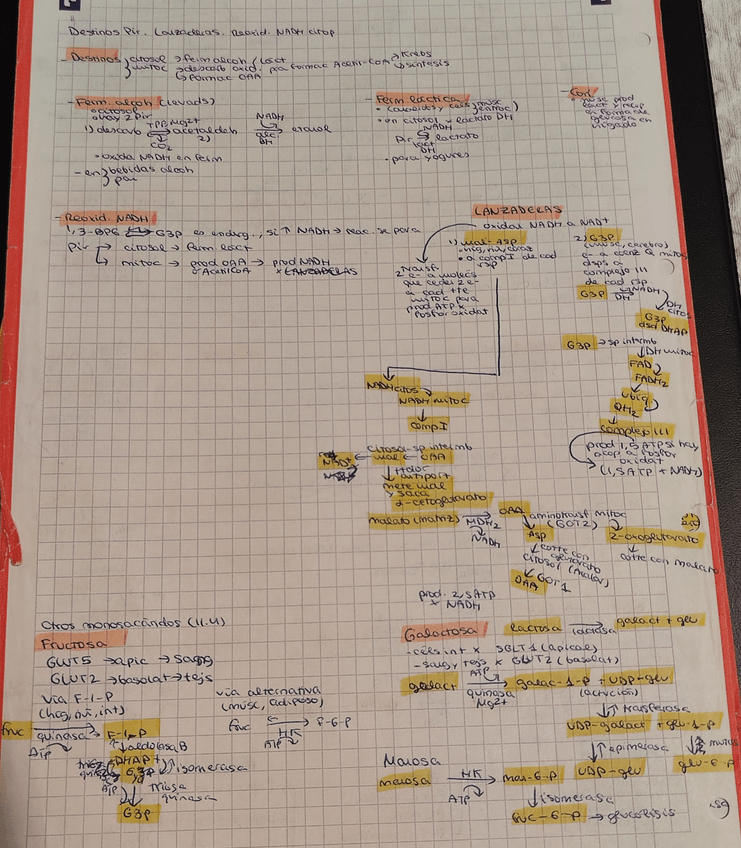 Destinos Pir. Lanzaderas. Reoxid. NADH citop
- Destinos citosol → ferm alcoh / lact → Krebs
mitoc → descarb oxid. pa formac Acetil-CoA → síntesis
→ formac OAA
- Ferm. alcoh (levads)
• citosol
1) descarb TPP, Mg2+ acetaldeh NADH etanol
CO2 2) alc DH
• oxida NADH en ferm
- en bebidas alcoh
pan
- Ferm láctica
• en citosol x lactato DH
NADH
Pir lactato
lact DH
• para yogures
- Cori
• musc prod
lact y hígado
- Reoxid. NADH
1,3-BPG ← G3P es enderg., si ↑ NADH → reac. se para
Pir → citosol → ferm lact
→ mitoc → prod OAA → prod NADH
o AcetilCoA x LANZADERAS
LANZADERAS
oxidar NADH a NAD+
1) mal-Asp
• a comp I de cad
rsp
Transf
2 e- a molecs
que ceden 2 e-
a cad tte
mitoc para
prod ATP x
fosfor oxidat
2) G3P
(musc, cerebro)
e- a coenz Q mitoc
dsps a
complejo III
de cad rsp
G3P NADH
DH
DH
citos
G3P
dsd DHAP
G3P → sp intermb
↓ DH mitoc
FAD
FADH2
ubiq
QH2
complejo III
prod 1,5 ATP si hay
acop a fosfor
oxidat
(1,5 ATP + NAD+)
NADH citos
NADH mitoc
↓
comp I
citosol-sp intermb
NAD+ ← mal ← OAA
antiport
mete mal
y saca
α-cetoglutarato
malato (matriz) → OAA aminotransf mitoc
MDH2 (GOT2)
NADH Asp 2-oxoglutarato
citosol
OAA GOT1
prod. 2,5 ATP
x NADH
Otros monosacáridos (11.4)
Fructosa
GLUT5 → apic → sang
GLUT2 → basolat → tejs
vía F-1-P
(hig, riñ, int)
fruc quinasa F-1-P
ATP ↑↓ aldolasa B
DHAP +
isomerasa
ATP triosa
quinasa
G3P
vía alternativa
(músc, adiposo)
fruc → F-6-P
HK
ATP
Galactosa
lactosa → galact + glu
lactasa
- céls int x SGLT1 (apical)
- sang y tejs x GLUT2 (basolat)
galact ATP galac-1-P + UDP-glu
quinasa
Mg2+
↑↓ transferasa
UDP-galact + glu-1-P
↑↓ epimerasa ↑↓ mutasa
UDP-glu glu-6-P
Manosa
manosa HK man-6-P
ATP ↓ isomerasa
fruc-6-P → glucólisis